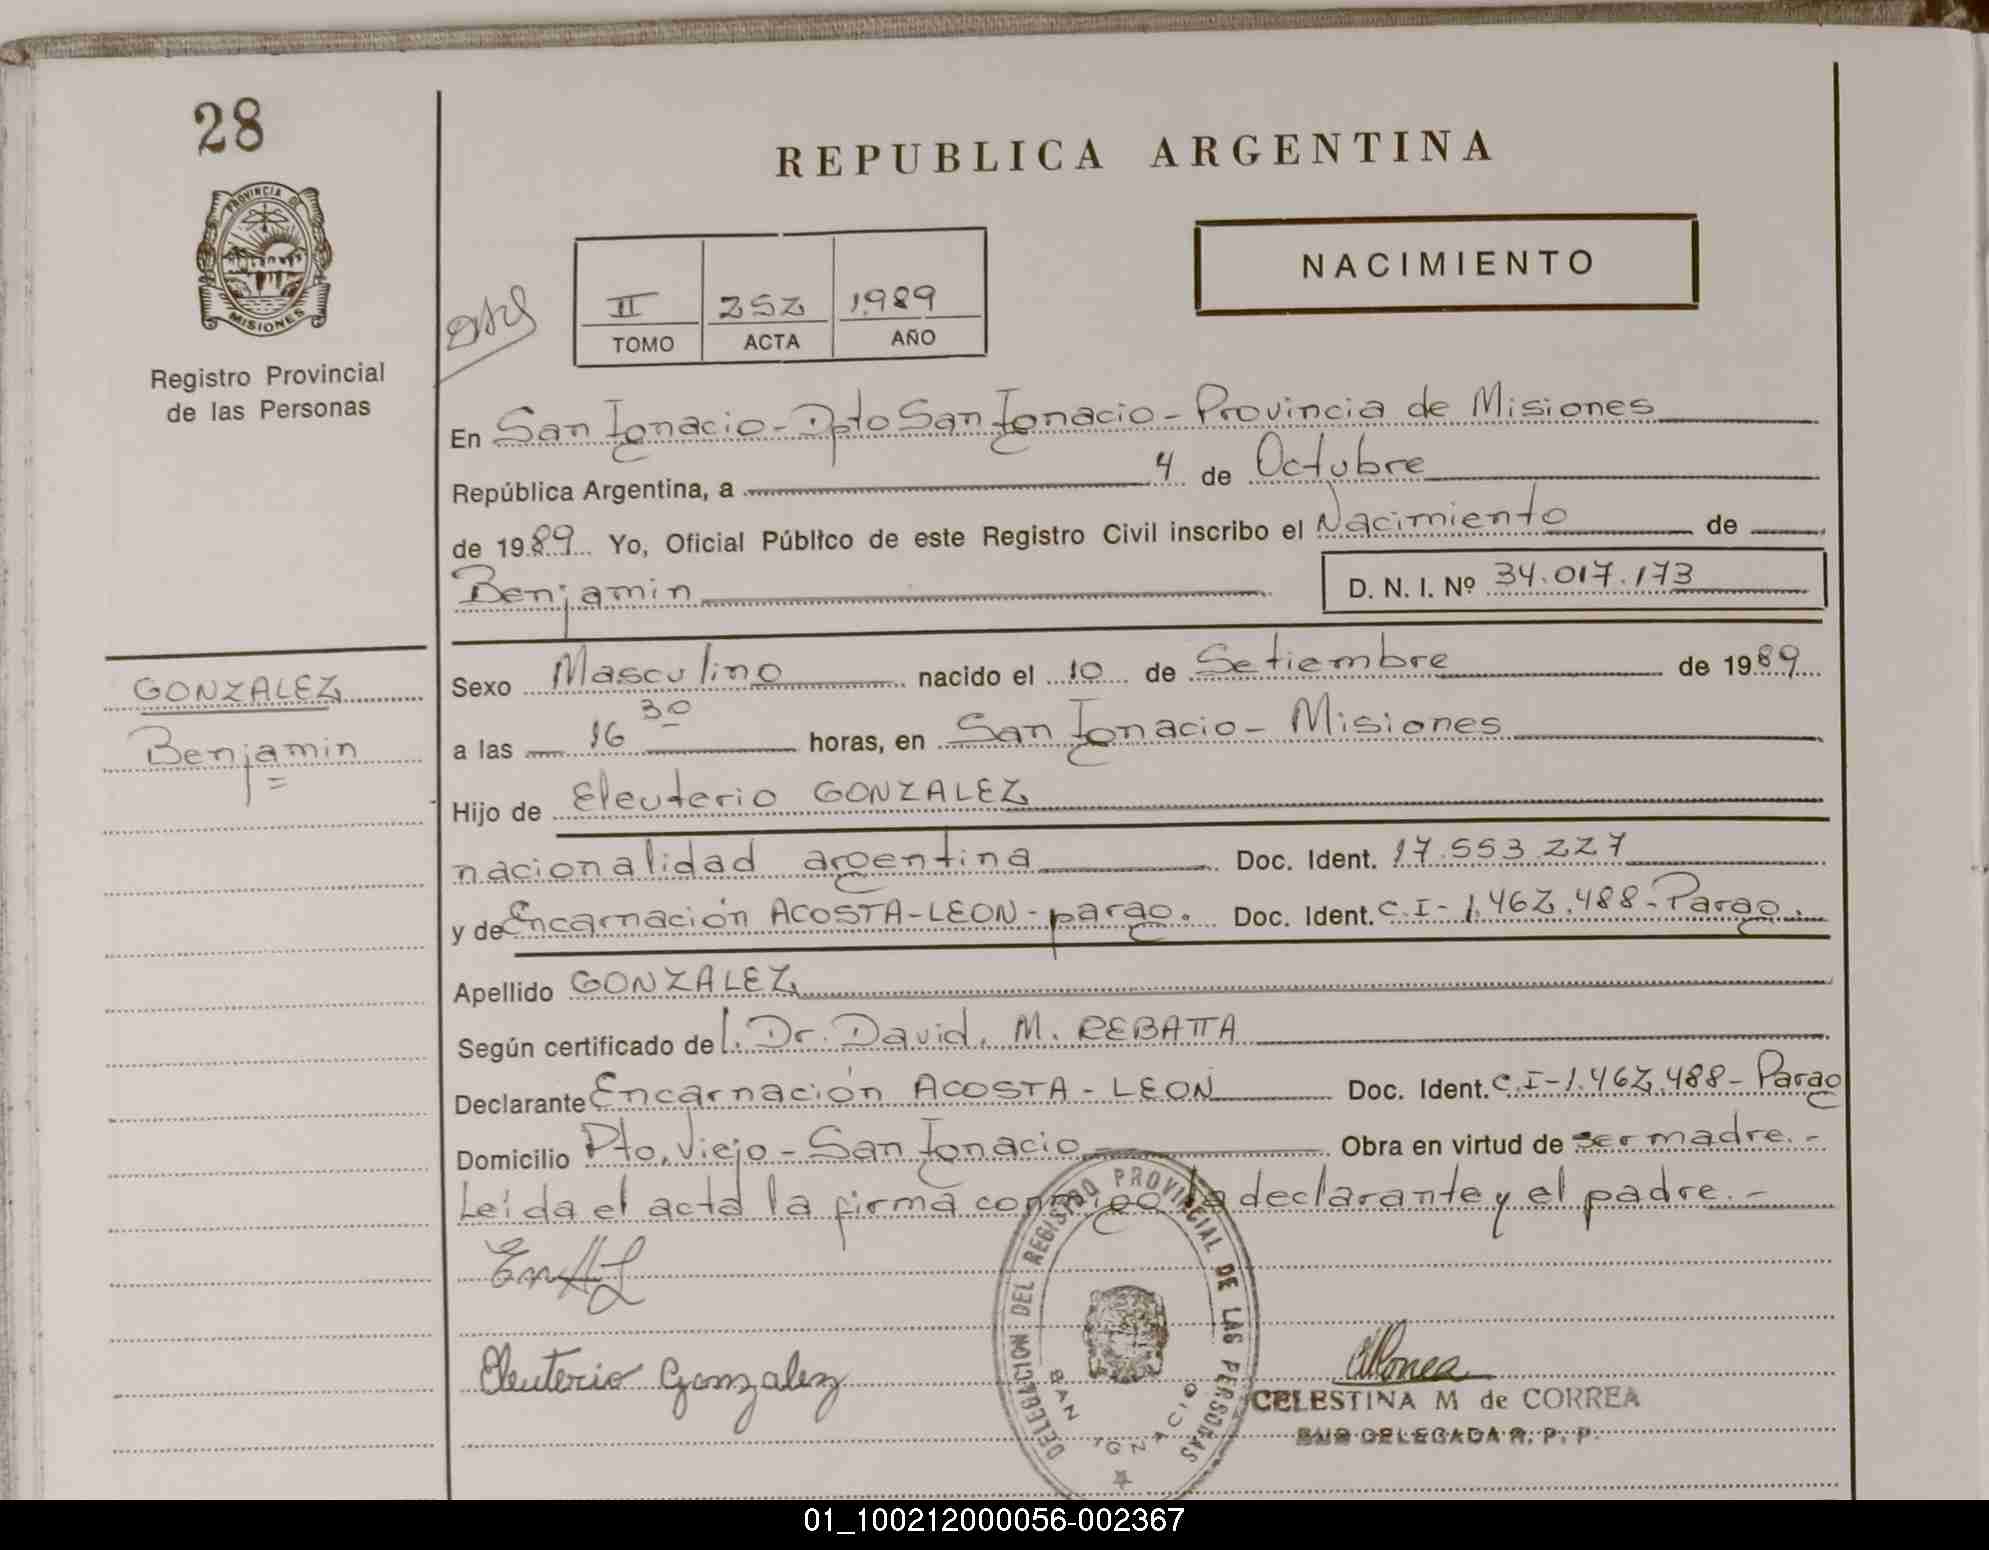 28
REPUBLICA ARGENTINA
PROVINCIA DE
MISIONES
Registro Provincial
de las Personas
II 252 1989
TOMO ACTA AÑO
NACIMIENTO
En San Ignacio - Dpto San Ignacio - Provincia de Misiones
República Argentina, a 4 de Octubre
de 1989 Yo, Oficial Público de este Registro Civil inscribo el Nacimiento de
Benjamin D. N. I. Nº 34.017.173
GONZALEZ
Benjamin
Sexo Masculino nacido el 10 de Setiembre de 1989
a las 16 30 horas, en San Ignacio - Misiones
Hijo de Eleuterio GONZALEZ
nacionalidad argentina Doc. Ident. 17.553.227
y de Encarnación ACOSTA-LEON - parag. Doc. Ident. C.I - 1.462.488 - Parag.
Apellido GONZALEZ
Según certificado de l. Dr. David. M. REBATTA
Declarante Encarnación ACOSTA - LEON Doc. Ident. C.I - 1.462.488 - Parag
Domicilio Pto. Viejo - San Ignacio Obra en virtud de ser madre. -
Leída el acta la firma conmigo la declarante y el padre. -
Eleuterio Gonzalez
DELEGACION DEL REGISTRO PROVINCIAL DE LAS PERSONAS
SAN IGNACIO
CELESTINA M de CORREA
SUB DELEGADA R. P. P.
01_100212000056-002367